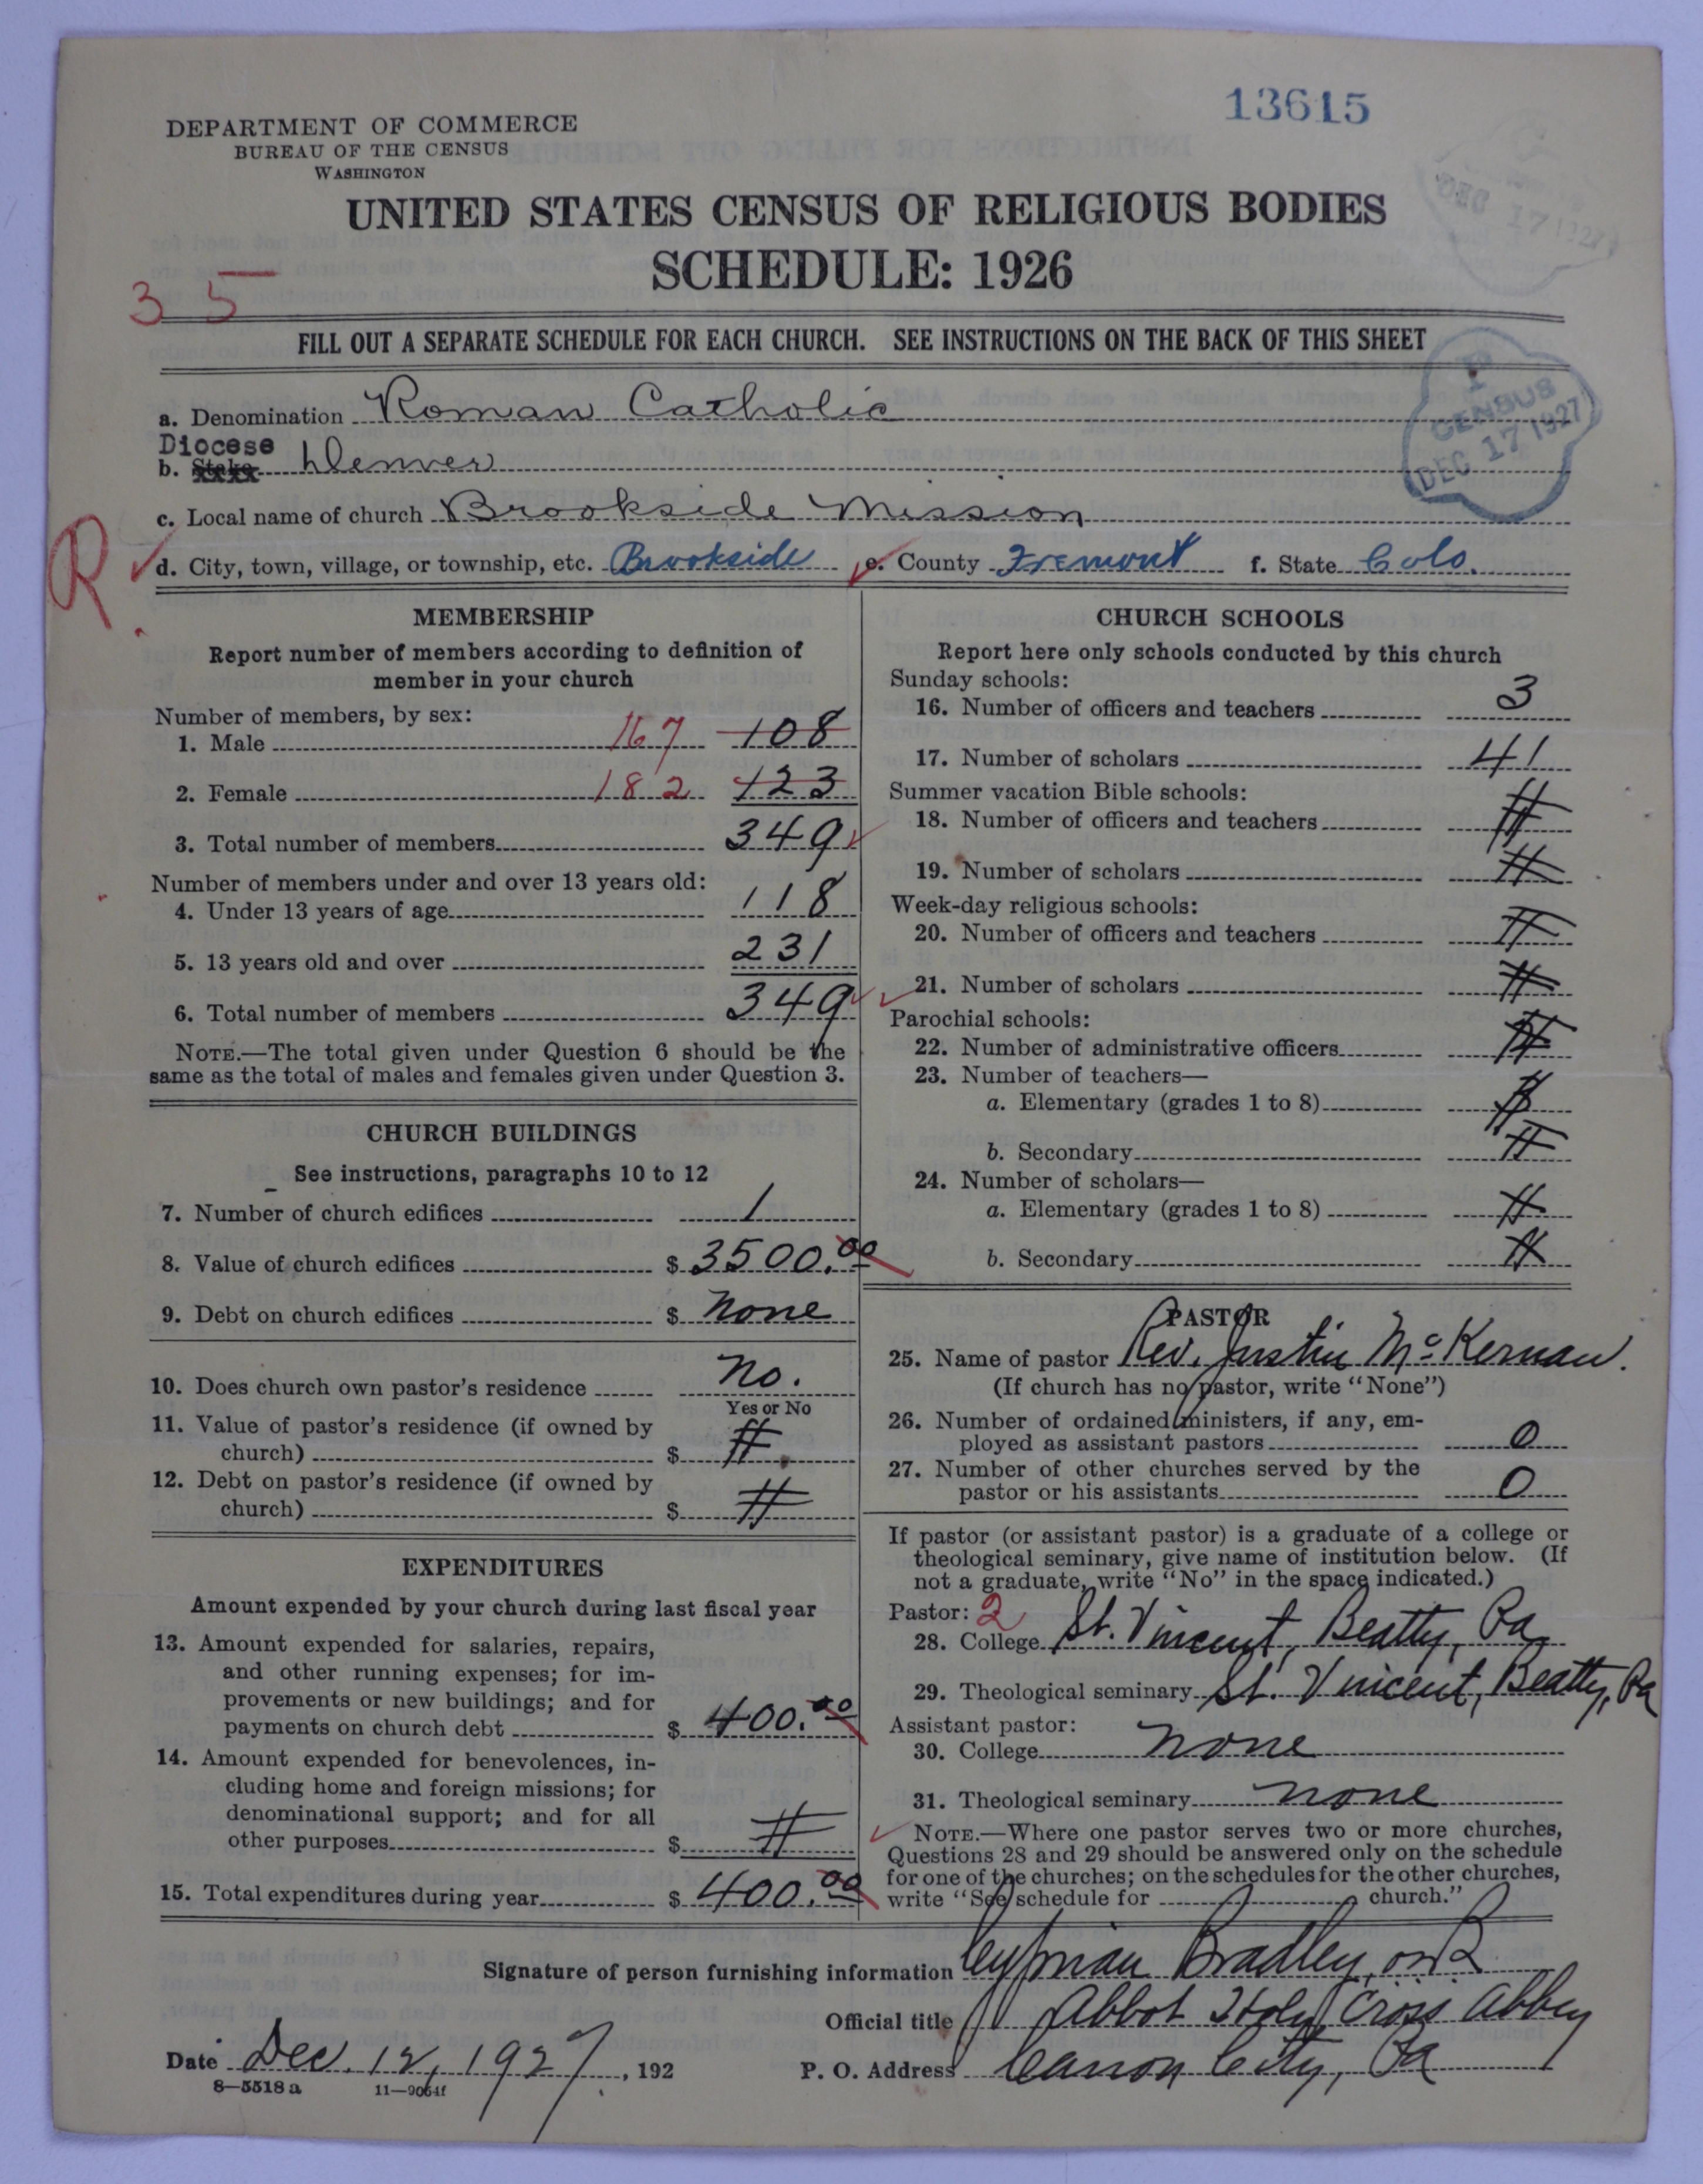 13615
DEPARTMENT OF COMMERCE
BUREAU OF THE CENSUS
WASHINGTON
UNITED STATES CENSUS OF RELIGIOUS BODIES
SCHEDULE: 1926
3 5
DEC 17 1927
FILL OUT A SEPARATE SCHEDULE FOR EACH CHURCH. SEE INSTRUCTIONS ON THE BACK OF THIS SHEET
CENSUS
DEC 17 1927
a. Denomination Roman Catholic
Diocese
b. Stake Denver
c. Local name of church Brookside Mission
R.
d. City, town, village, or township, etc. Brookside e. County Fremont f. State Colo.
MEMBERSHIP
Report number of members according to definition of
member in your church
Number of members, by sex:
1. Male 167 108
2. Female 182 123
3. Total number of members 349
Number of members under and over 13 years old:
4. Under 13 years of age 118
5. 13 years old and over 231
6. Total number of members 349
NOTE.—The total given under Question 6 should be the
same as the total of males and females given under Question 3.
CHURCH BUILDINGS
See instructions, paragraphs 10 to 12
7. Number of church edifices 1
8. Value of church edifices $ 3500.00
9. Debt on church edifices $ none
10. Does church own pastor's residence no.
Yes or No
11. Value of pastor's residence (if owned by
church) $ #
12. Debt on pastor's residence (if owned by
church) $ #
EXPENDITURES
Amount expended by your church during last fiscal year
13. Amount expended for salaries, repairs,
and other running expenses; for im-
provements or new buildings; and for
payments on church debt $ 400.00
14. Amount expended for benevolences, in-
cluding home and foreign missions; for
denominational support; and for all
other purposes $ #
15. Total expenditures during year $ 400.00
CHURCH SCHOOLS
Report here only schools conducted by this church
Sunday schools:
16. Number of officers and teachers 3
17. Number of scholars 41
Summer vacation Bible schools:
18. Number of officers and teachers #
19. Number of scholars #
Week-day religious schools:
20. Number of officers and teachers #
21. Number of scholars #
Parochial schools:
22. Number of administrative officers #
23. Number of teachers—
a. Elementary (grades 1 to 8) #
b. Secondary #
24. Number of scholars—
a. Elementary (grades 1 to 8) #
b. Secondary #
PASTOR
25. Name of pastor Rev. Justin McKernan.
(If church has no pastor, write "None")
26. Number of ordained ministers, if any, em-
ployed as assistant pastors 0
27. Number of other churches served by the
pastor or his assistants 0
If pastor (or assistant pastor) is a graduate of a college or
theological seminary, give name of institution below. (If
not a graduate, write "No" in the space indicated.)
Pastor: 2
28. College St. Vincent, Beatty, Pa
29. Theological seminary St. Vincent, Beatty, Pa
Assistant pastor:
30. College none
31. Theological seminary none
NOTE.—Where one pastor serves two or more churches,
Questions 28 and 29 should be answered only on the schedule
for one of the churches; on the schedules for the other churches,
write "See schedule for church."
Signature of person furnishing information Cyprian Bradley,
Official title Abbot Holy Cross Abbey
Date Dec. 12, 1927, 192
P. O. Address Canon City, Pa
8—5518 a 11—9054f